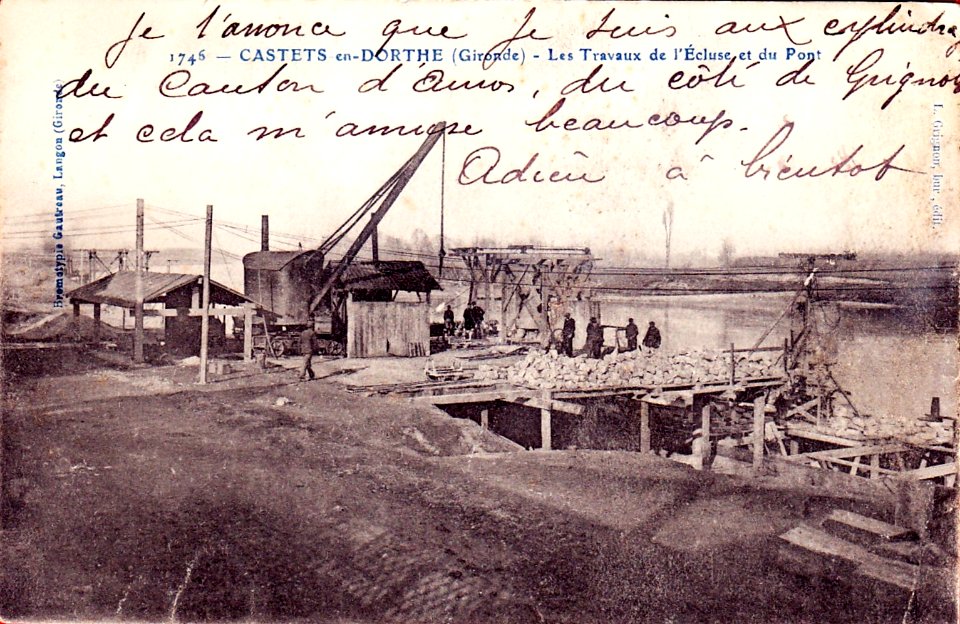 Je t'anonce que Je suis aux cylindrag
1746 — CASTETS-en-DORTHE (Gironde) - Les Travaux de l'Écluse et du Pont
du Canton d'Auros, du côté de Grignols
et cela m'amuse beaucoup.
Adieu à bientot
Bromotypie Gautreau, Langon (Gironde)
L. Guignor, édit.